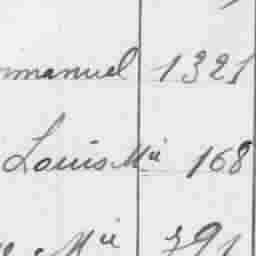 mmanuel 1321
Louis Mie 168
Mie 791